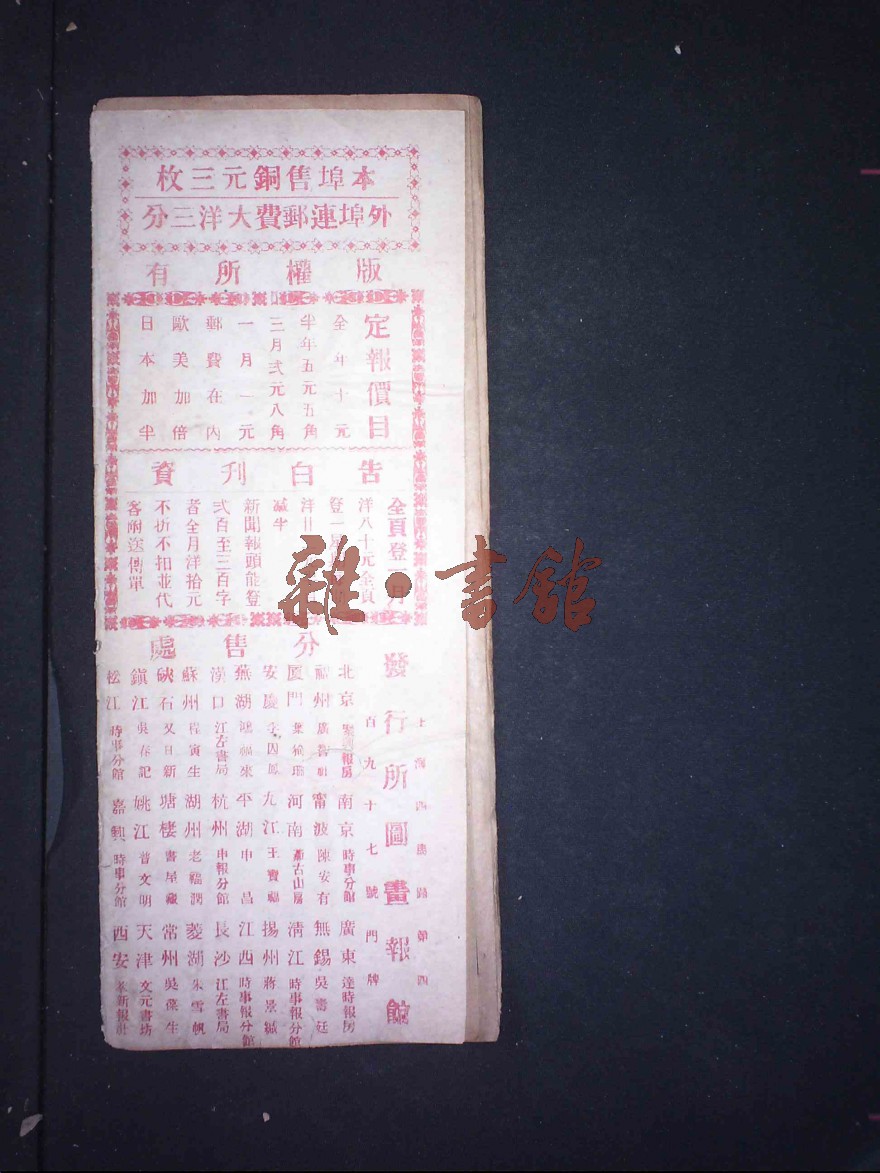 本埠售銅元三枚
外埠連郵費大洋三分
版權所有
定報價目
全年十元
半年五元五角
三月弍元八角
一月一元
郵費在內
歐美加倍
日本加半
告白刊資
全頁登一月
洋八十元全頁
登一
洋廿
減半
新聞報頭能登
弍百至三百字
者全月洋拾元
不折不扣並代
客附送傳單
發行所圖畫報館
上海四馬路第四
百九十七號門牌
分售處
北京 報房 南京 時事分館 廣東 達時報房
福州 廣智 甯波 陳安有 無錫 吳壽廷
厦門 葉 河南 萬古山房 清江 時事報分館
安慶 李 九江 王寶福 揚州 蔣景
蕪湖 來 平湖 申昌 江西 時事報分館
漢口 江左書局 杭州 申報分館 長沙 江左書局
蘇州 程寅生 湖州 老福潤 菱湖 朱雪帆
硤石 又日新 塘棲 書星藏 常州 吳葆生
鎮江 吳春記 姚江 普文明 天津 文元書坊
松江 時事分館 嘉興 時事分館 西安 革新報社
雜·書館